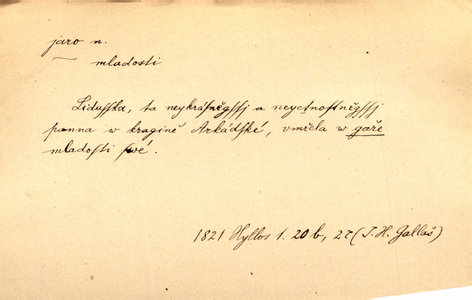 jaro n.
— mladosti
Liduſſka, ta neykráſněgſſj a neyctnoſtněgſſj
panna w kragině Arkádſké, vmřela w gaře
mladoſti ſwé.
1821 Hyllos 1. 20 b, 27 (J. H. Gallaš)